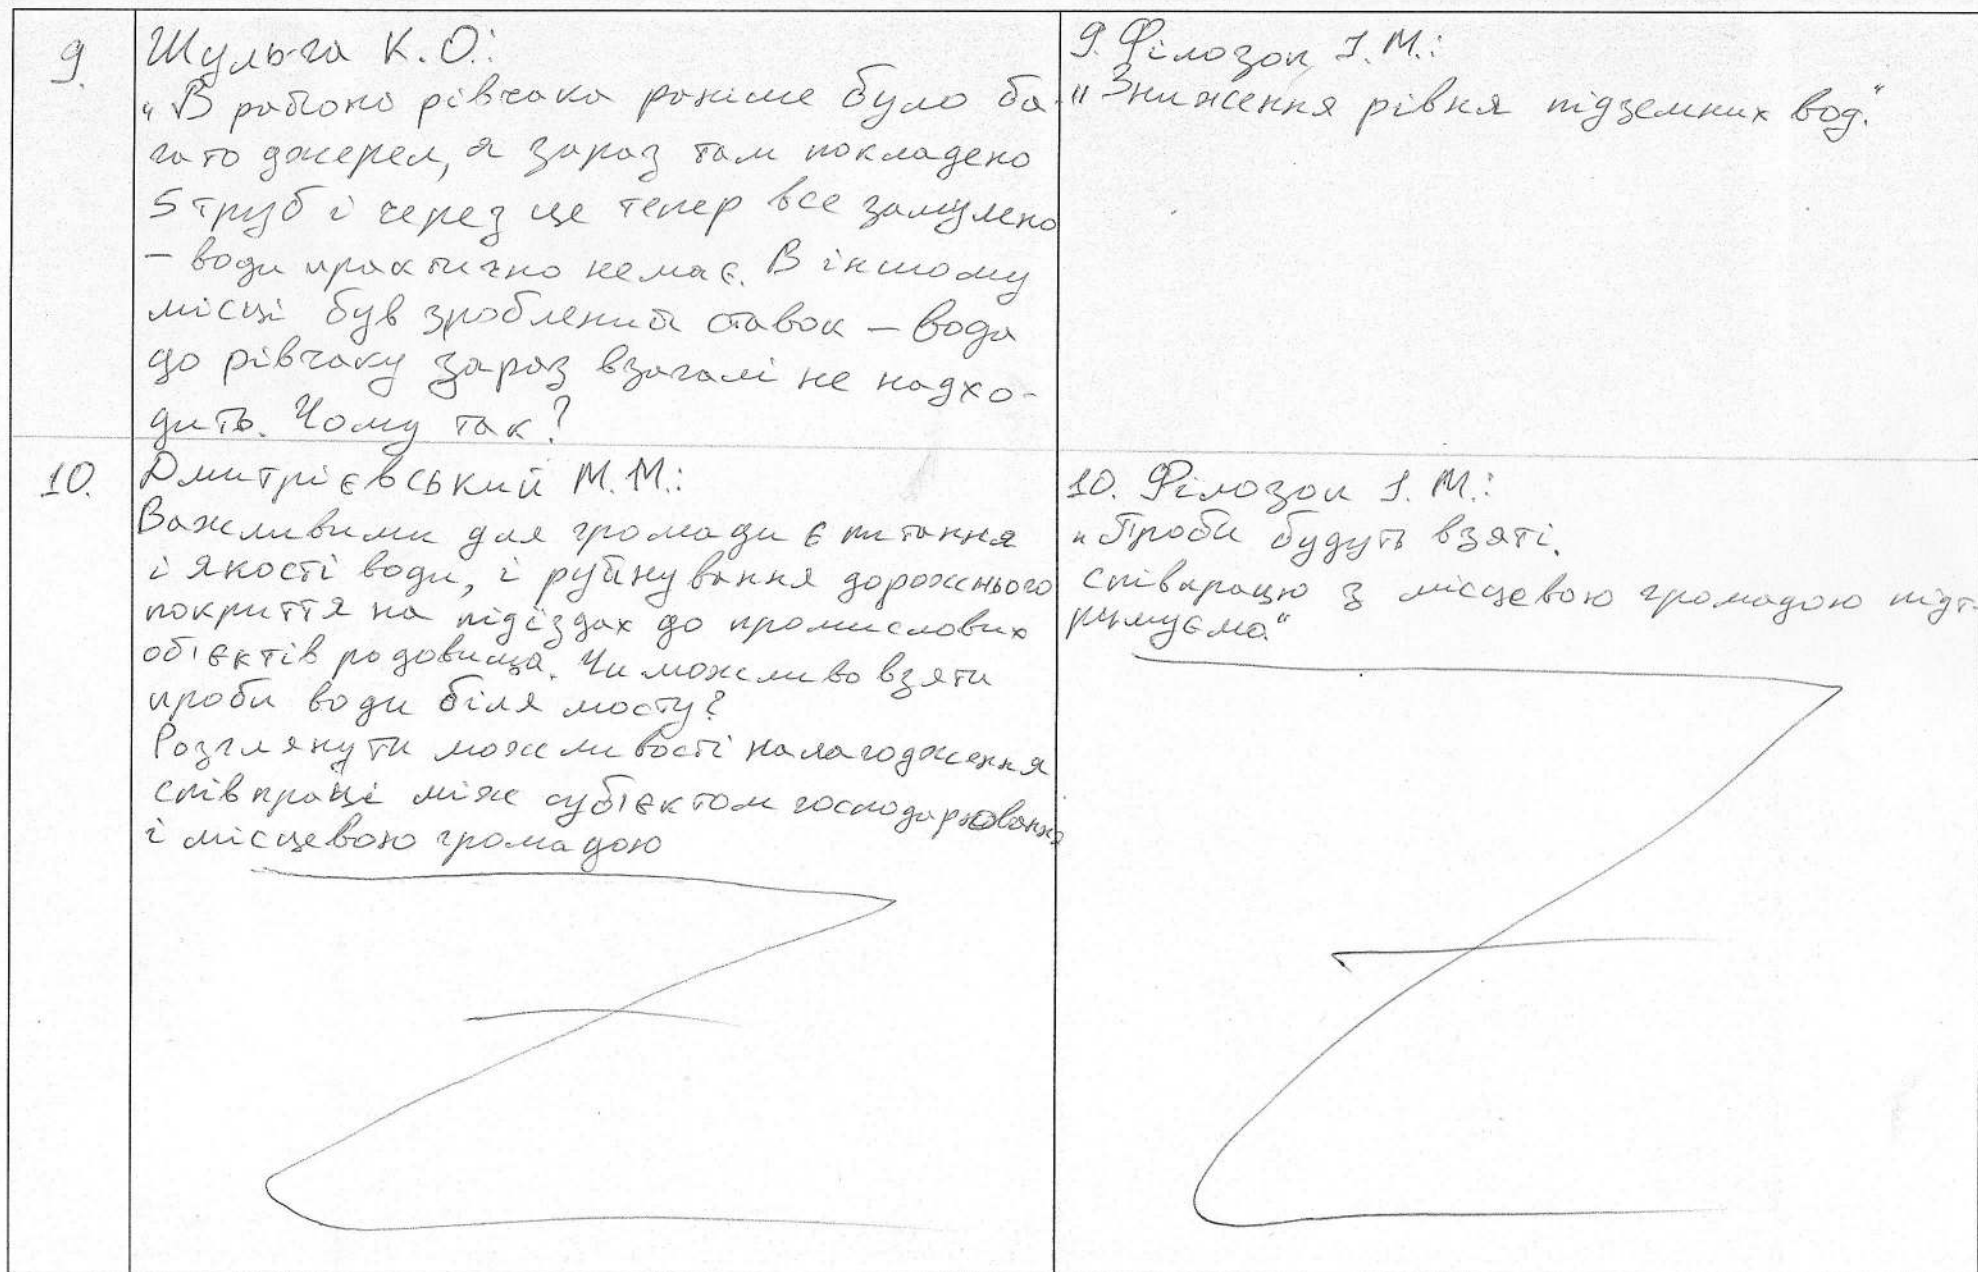 9.
Шульга К.О.:
„В районі рівчака раніше було ба-
гато джерел, а зараз там покладено
5 труб і через це тепер все замулено
– води практично немає. В іншому
місці був зроблений ставок – вода
до рівчаку зараз взагалі не надхо-
дить. Чому так?
9. Філозоп І.М.:
„Зниження рівня підземних вод."
10.
Дмитрієвський М.М.:
Важливими для громади є питання
і якості води, і руйнування дорожнього
покриття на підїздах до промислових
об'єктів родовища. Чи можливо взяти
проби води біля мосту?
Розглянути можливості налагодження
співпраці між суб'єктом господарювання
і місцевою громадою
10. Філозоп І.М.:
„Проби будуть взяті.
співпрацю з місцевою громадою підт-
римуємо."